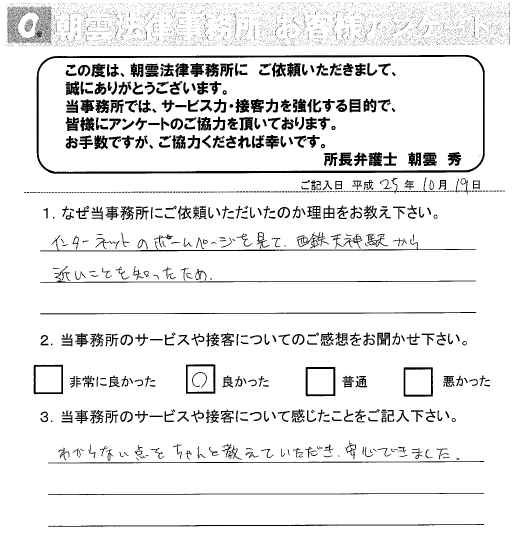 朝雲法律事務所 お客様アンケート
この度は、朝雲法律事務所に ご依頼いただきまして、
誠にありがとうございます。
当事務所では、サービス力・接客力を強化する目的で、
皆様にアンケートのご協力を頂いております。
お手数ですが、ご協力くだされば幸いです。
所長弁護士 朝雲 秀
ご記入日 平成 25 年 10 月 19 日
1. なぜ当事務所にご依頼いただいたのか理由をお教え下さい。
インターネットのホームページを見て、西鉄天神駅から
近いことを知ったため。
2. 当事務所のサービスや接客についてのご感想をお聞かせ下さい。
非常に良かった ○ 良かった 普通 悪かった
3. 当事務所のサービスや接客について感じたことをご記入下さい。
わからない点をちゃんと教えていただき、安心できました。